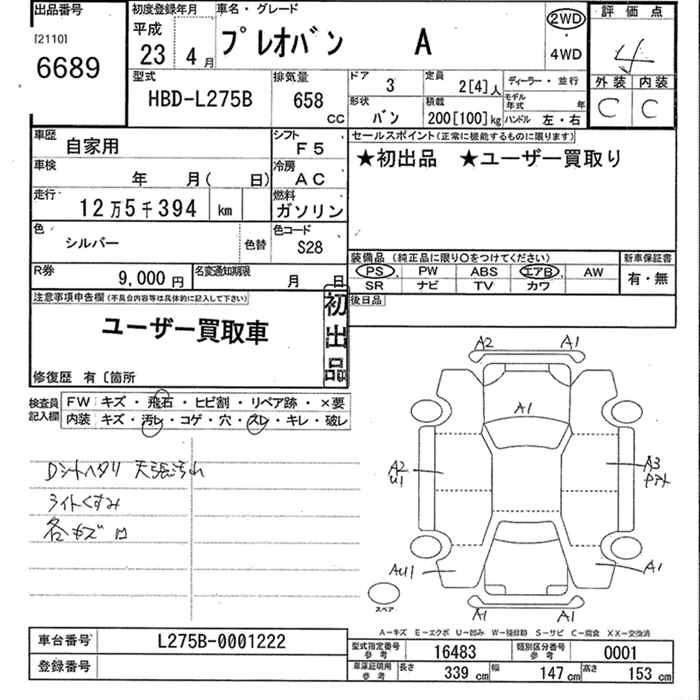 出品番号
[2110]
6689
初度登録年月
平成
23 4月
車名・グレード
プレオバン A
2WD
・
4WD
評価点
4
外装 内装
C C
型式
HBD-L275B
排気量
658 cc
ドア 3
定員 2[4]人
ディーラー・並行
モデル年式 年
形状 バン
積載 200[100]kg
ハンドル 左・右
車歴 自家用
シフト F5
車検 年 月( 日)
冷房 AC
走行 12万5千394 km
燃料 ガソリン
色 シルバー
色替
色コード S28
R券 9,000円
名変通知期限 月 日
セールスポイント(正常に機能するものに限ります)
★初出品 ★ユーザー買取り
装備品 (純正品に限り○をつけてください)
PS PW ABS エアB AW
SR ナビ TV カワ
新車保証書
有・無
後日品
注意事項申告欄(不具合内容等は具体的に記入して下さい)
ユーザー買取車
初出品
修復歴 有〔箇所
検査員記入欄
FW キズ・飛石・ヒビ割・リペア跡・×要
内装 キズ・汚レ・コゲ・穴・スレ・キレ・破レ
Dシートヘタリ 天張汚れ
ライトくすみ
各キズ
A2 A1
A1
A2
U1
A3
AU1
A1
A1 A1
スペア
A-キズ E-エクボ U-凹み W-補修跡 S-サビ C-腐食 XX-交換済
車台番号 L275B-0001222
登録番号
型式指定番号 参考 16483
類別区分番号 参考 0001
車庫証明用 参考 長さ 339cm 幅 147cm 高さ 153cm